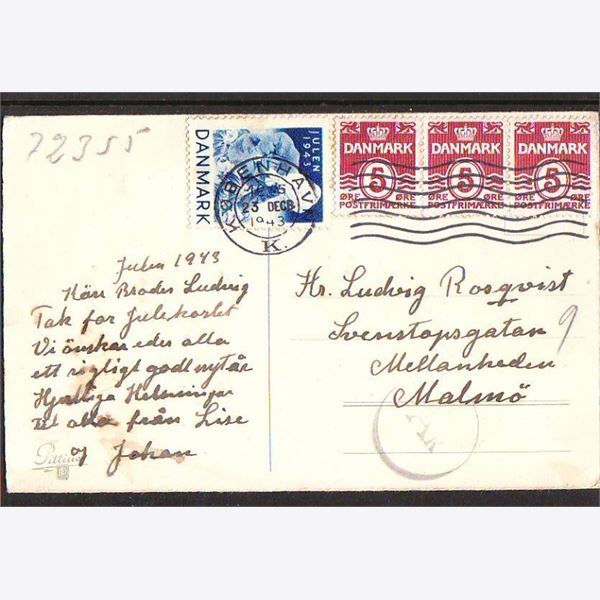 72355
JULEN 1943
DANMARK
KØBENHAVN
23 DECB
1943
K.
DANMARK
5
ØRE ØRE
POSTFRIMÆRKE
DANMARK
5
ØRE ØRE
POSTFRIMÆRKE
DANMARK
5
ØRE ØRE
POSTFRIMÆRKE
Julen 1943
Kära Broder Ludvig
Tak for Julekortet
Vi önskar eder alla
ett rigtigt godt nytår
Hjertliga Helsninger
til alla från Lise
og Johan
Hr. Ludvig Rosqvist
Svenstopsgatan 9
Mellanheden
Malmö